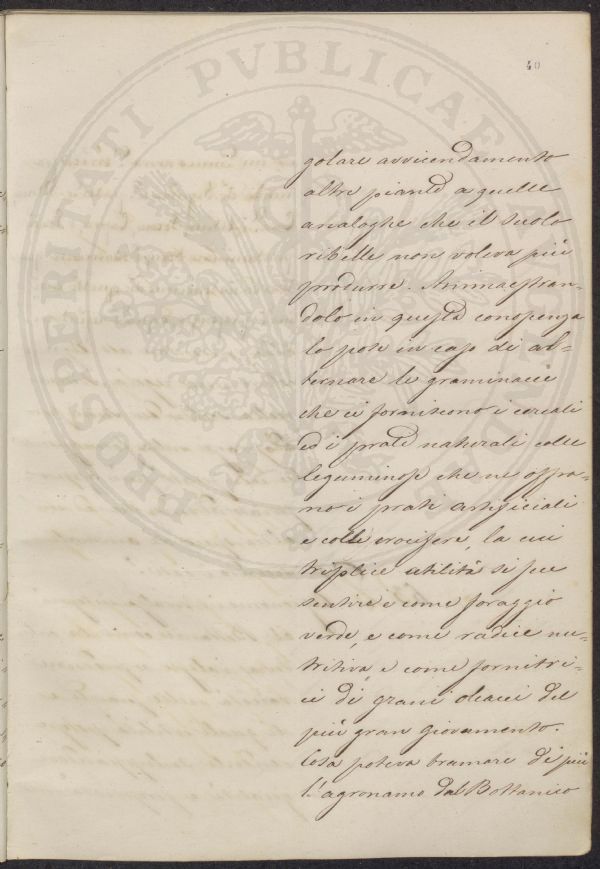 40
PROSPERITATI PVBLICAE AVGENDAE
golare avvicendamento
altre piante a quelle
analoghe che il suolo
ribelle non voleva più
produrre. Ammaestran-
dolo in questa conoscenza
lo pose in caso di al-
ternare le graminacee
che ci forniscono i cereali
ed i prati naturali colle
leguminose che ne offro-
no i prati artificiali
e colle crocifere, la cui
triplice utilità si fece
sentire e come foraggio
verde, e come radice nu-
tritiva, e come fornitri-
ci di grani oleacei del
più gran giovamento.
Cosa poteva bramare di più
l'agronamo dal Bottanico